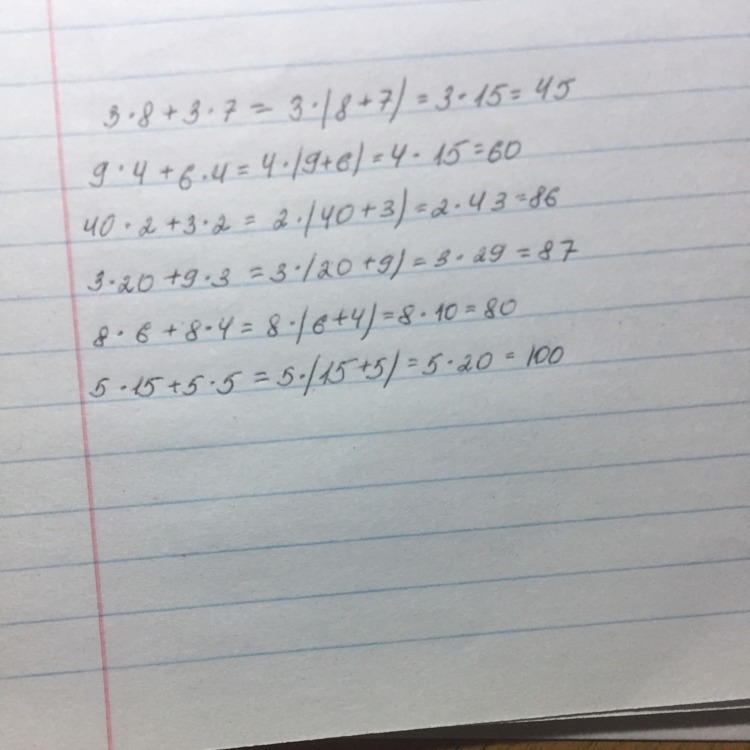 3·8+3·7 = 3·(8+7) = 3·15 = 45
9·4+6·4 = 4·(9+6) = 4·15 = 60
40·2+3·2 = 2·(40+3) = 2·43 = 86
3·20+9·3 = 3·(20+9) = 3·29 = 87
8·6+8·4 = 8·(6+4) = 8·10 = 80
5·15+5·5 = 5·(15+5) = 5·20 = 100